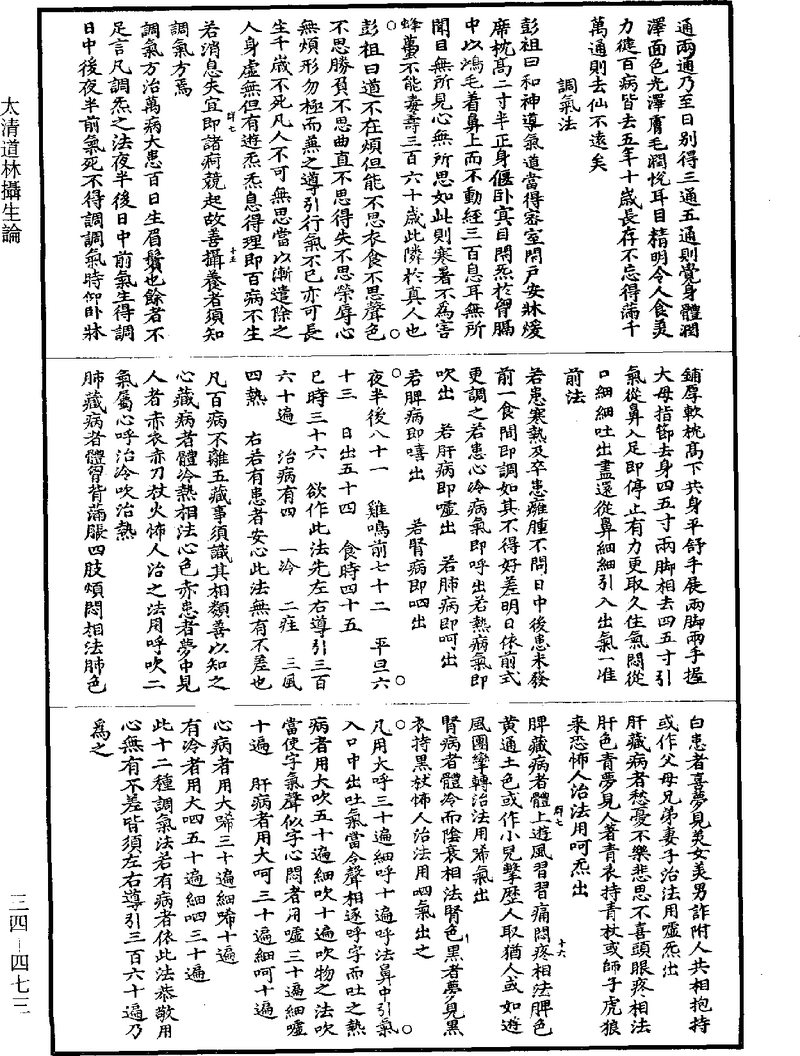 太清道林攝生論
通兩通乃至日別得三通五通則覺身體潤
澤面色光澤膚毛潤悅耳目精明令人食美
力徤百病皆去五年十歲長存不忘得滿千
萬通則去仙不遠矣
調氣法
彭祖曰和神導氣道當得密室閉戶安牀煖
席枕高二寸半正身偃卧冥目閉炁於胷膈
中以鴻毛着鼻上而不動經三百息耳無所
聞目無所見心無所思如此則寒暑不爲害
蜂蠆不能毒壽三百六十歲此隣於真人也
彭祖曰道不在煩但能不思衣食不思聲色
不思勝負不思曲直不思得失不思榮辱心
無煩形勿極而蕪之導引行氣不已亦可長
生千歲不死凡人不可無思當以漸遣除之
人身虛無但有遊炁炁息得理即百病不生
若消息失宜即諸痾競起故善攝養者須知
調氣方焉
調氣方治萬病大患百日生眉鬚也餘者不
足言凡調炁之法夜半後日中前氣生得調
日中後夜半前氣死不得調調氣時仰卧牀
鋪厚軟枕高下共身平舒手展兩脚兩手握
大母指節去身四五寸兩脚相去四五寸引
氣從鼻入足即停止有力更取久住氣悶從
口細細吐出盡還從鼻細細引入出氣一准
前法
若患寒熱及卒患癰腫不問日中後患未發
前一食間即調如其不得好差明日依前式
更調之若患心冷病氣即呼出若熱病氣即
吹出　若肝病即噓出　若肺病即呵出
若脾病即嘻出　若腎病即呬出
夜半後八十一　雞鳴前七十二　平旦六
十三　日出五十四　食時四十五
巳時三十六　欲作此法先左右導引三百
六十遍　治病有四　一冷　二㽵　三風
四熱　右若有患者安心此法無有不差也
凡百病不離五藏事須識其相類善以知之
心藏病者體冷熱相法心色赤患者夢中見
人者赤衣赤刀杖火怖人治之法用呼吹二
氣屬心呼治冷吹治熱
肺藏病者體胷背滿脹四肢煩悶相法肺色
白患者喜夢見美女美男詐附人共相抱持
或作父母兄弟妻子治法用噓炁出
肝藏病者愁憂不樂悲思不喜頭眼疼相法
肝色青夢見人著青衣持青杖或師子虎狼
來恐怖人治法用呵炁出
脾藏病者體上遊風習習痛悶疼相法脾色
黃通土色或作小兒擊歷人取猶人或如遊
風團欒轉治法用唏氣出
腎病者體冷而陰衰相法腎色黑者夢見黑
衣持黑杖怖人治法用呬氣出之
凡用大呼三十遍細呼十遍呼法鼻中引氣
入口中出吐氣當令聲相逐呼字而吐之熱
病者用大吹五十遍細吹十遍吹物之法吹
當使字氣聲似字心悶者用噓三十遍細噓
十遍　肝病者用大呵三十遍細呵十遍
心病者用大唏三十遍細唏十遍
有冷者用大四五十遍細呬三十遍
此十二種調氣法若有病者依此法恭敬用
心無有不差皆須左右導引三百六十遍乃
爲之
三四—四七三